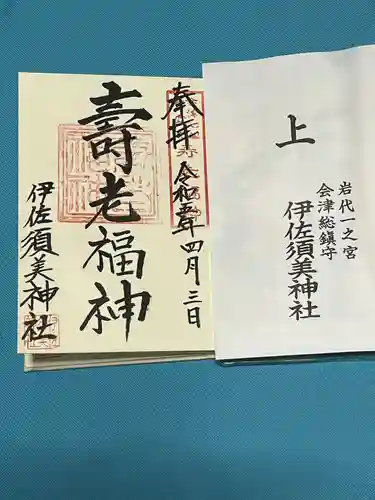 上
岩代一之宮
会津総鎮守
伊佐須美神社
奉拝
令和五年四月三日
壽老福神
伊佐須美神社